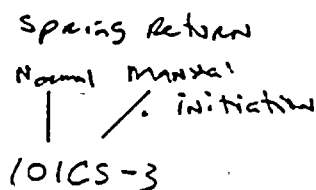 Spring Return
Normal Manual
initiation
101CS-3